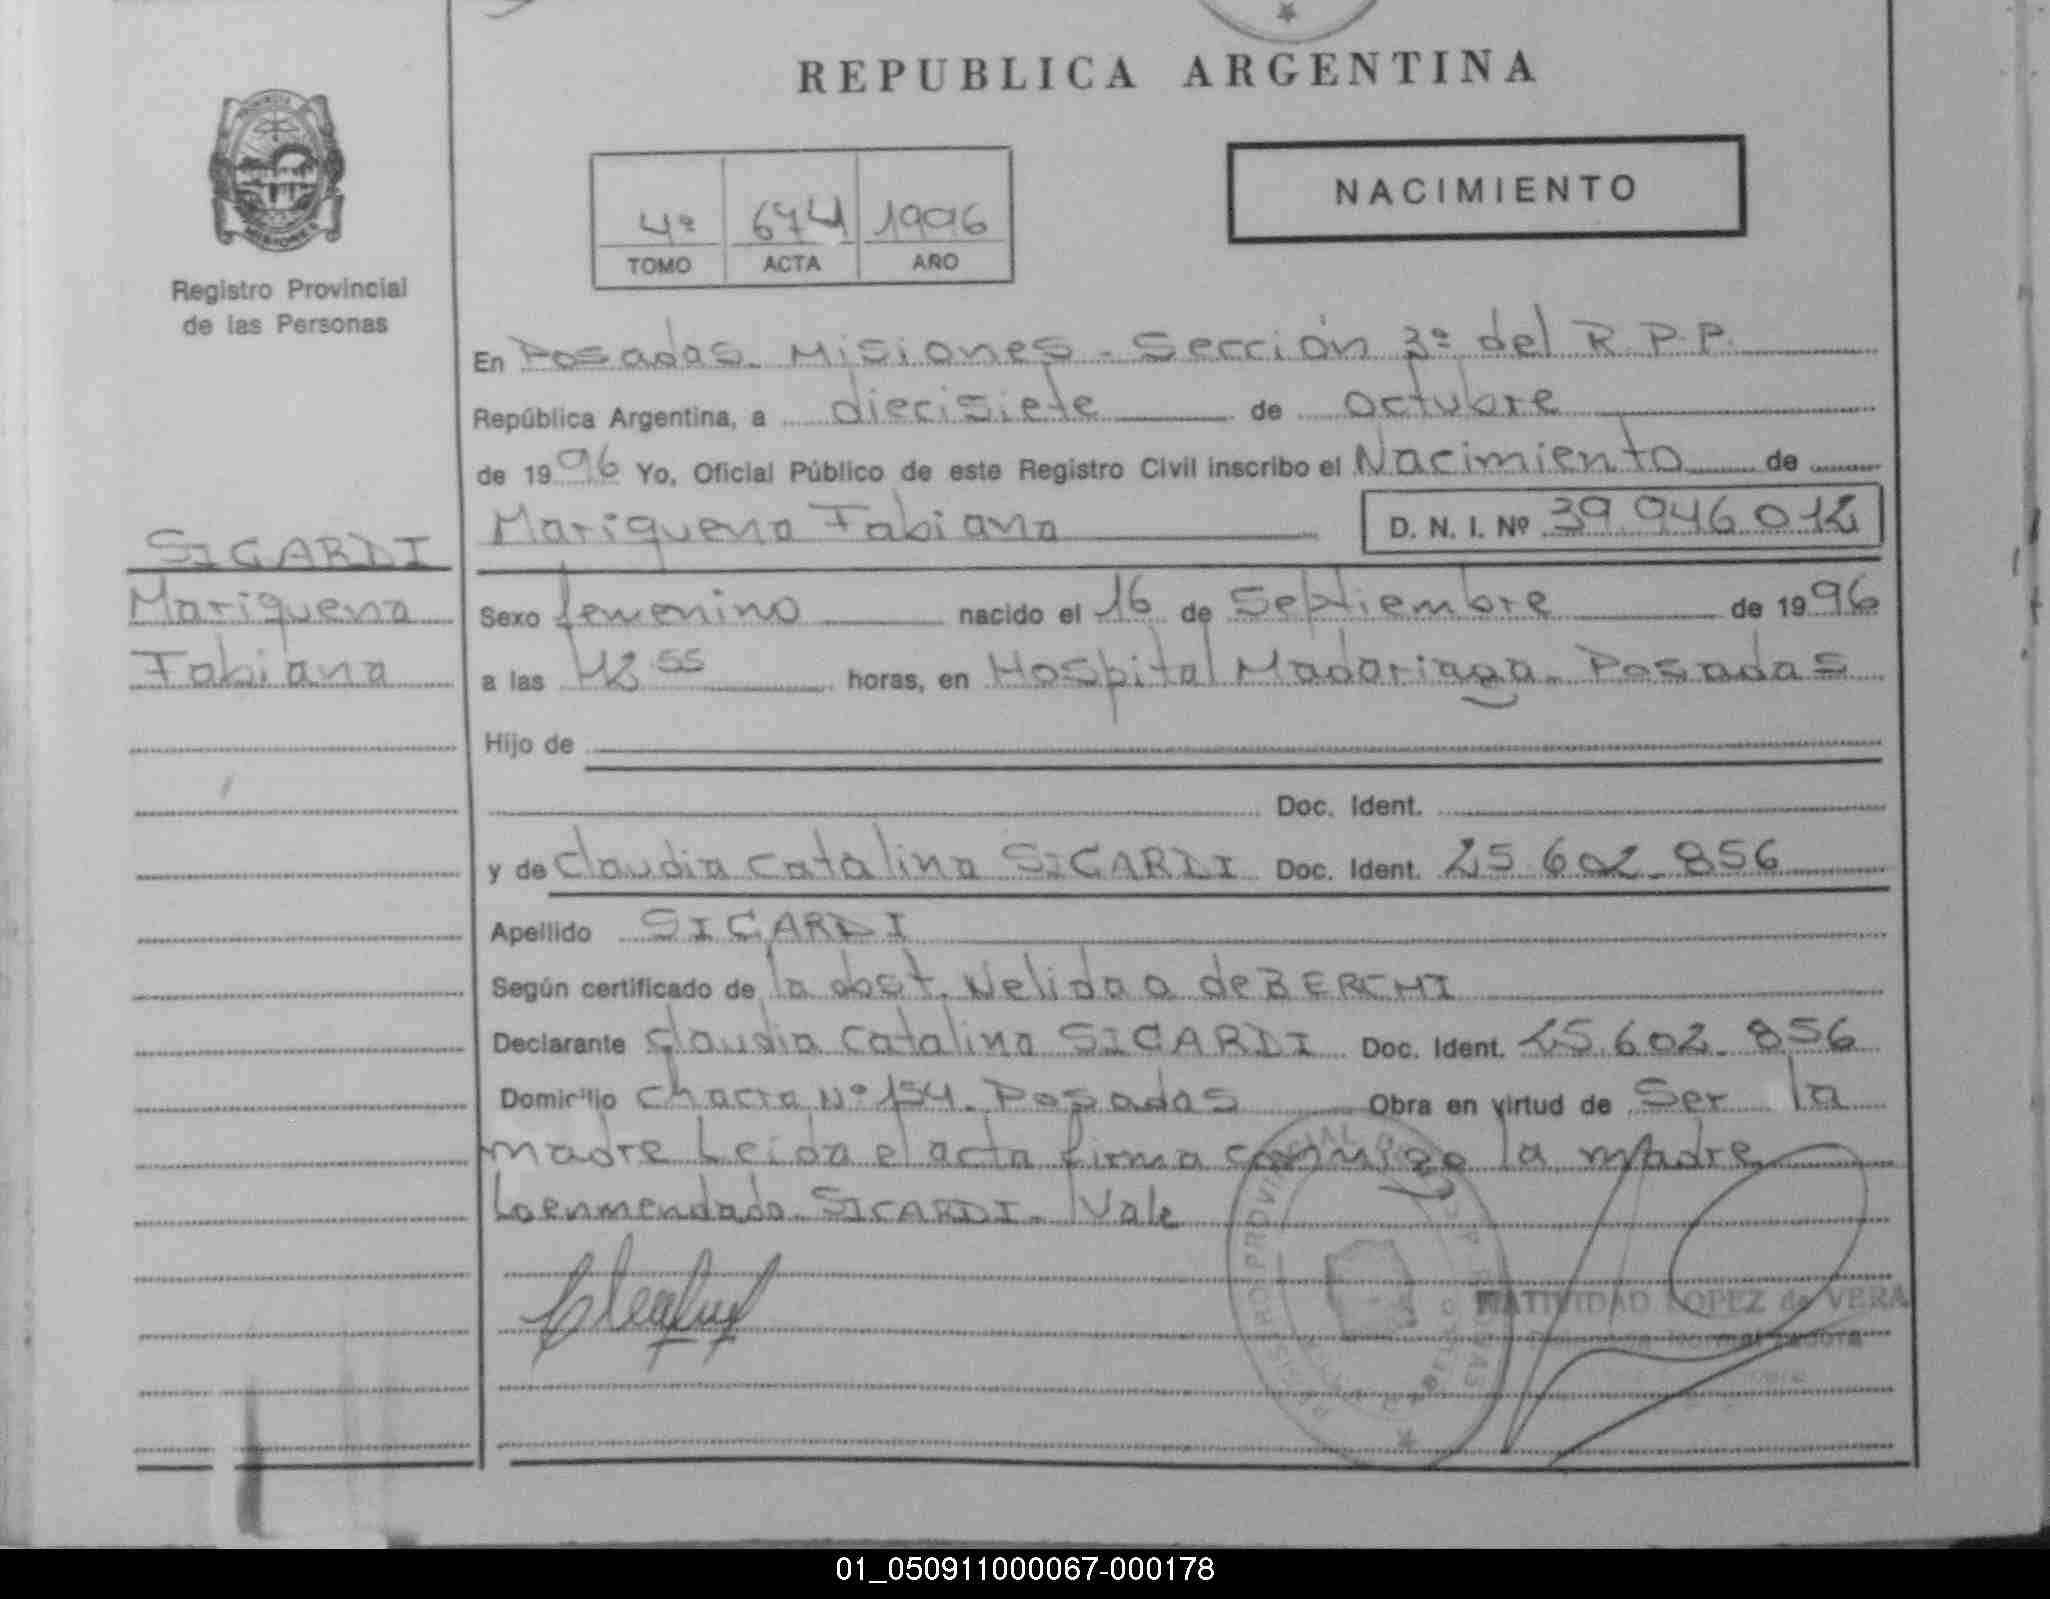 REPUBLICA ARGENTINA
NACIMIENTO
4º 674 1996
TOMO ACTA AÑO
Registro Provincial
de las Personas
En Posadas. Misiones - Sección 3ª del R.P.P.
República Argentina, a diecisiete de octubre
de 1996 Yo, Oficial Público de este Registro Civil inscribo el Nacimiento de
Mariquena Fabiana D. N. I. Nº 39.946.012
SIGARDI
Mariquena
Fabiana
Sexo femenino nacido el 16 de Septiembre de 1996
a las horas, en Hospital Madariaga. Posadas
Hijo de
Doc. Ident.
y de Claudia Catalina SIGARDI Doc. Ident. 25.602.856
Apellido SICARDI
Según certificado de la obst. Nelida a de BERCHI
Declarante Claudia Catalina SIGARDI Doc. Ident. 25.602.856
Domicilio Chacra Nº 154. Posadas Obra en virtud de Ser la
madre Leida el acta firma conmigo la madre
Lo enmendado. SICARDI. Vale
REGISTRO PROVINCIAL DE LAS PERSONAS
NATIVIDAD LOPEZ de VERA
01_050911000067-000178